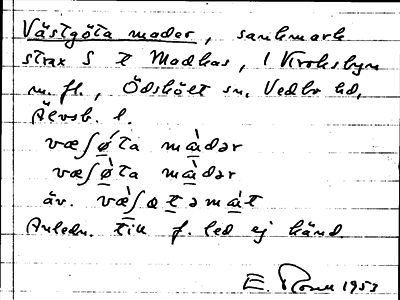 Västgöta mader, sankmark
strax S t Modkas, i Kroksbyn
m. fl., Ödskölt sn. Vedbo hd,
Älvsb. l.
væʃǿta mɑ̀dər
væʃø̀ta mɑ̀dər
äv. væ̀ʃətəmɑ̀t
Anledn. till f. led ej känd.
E. 1953